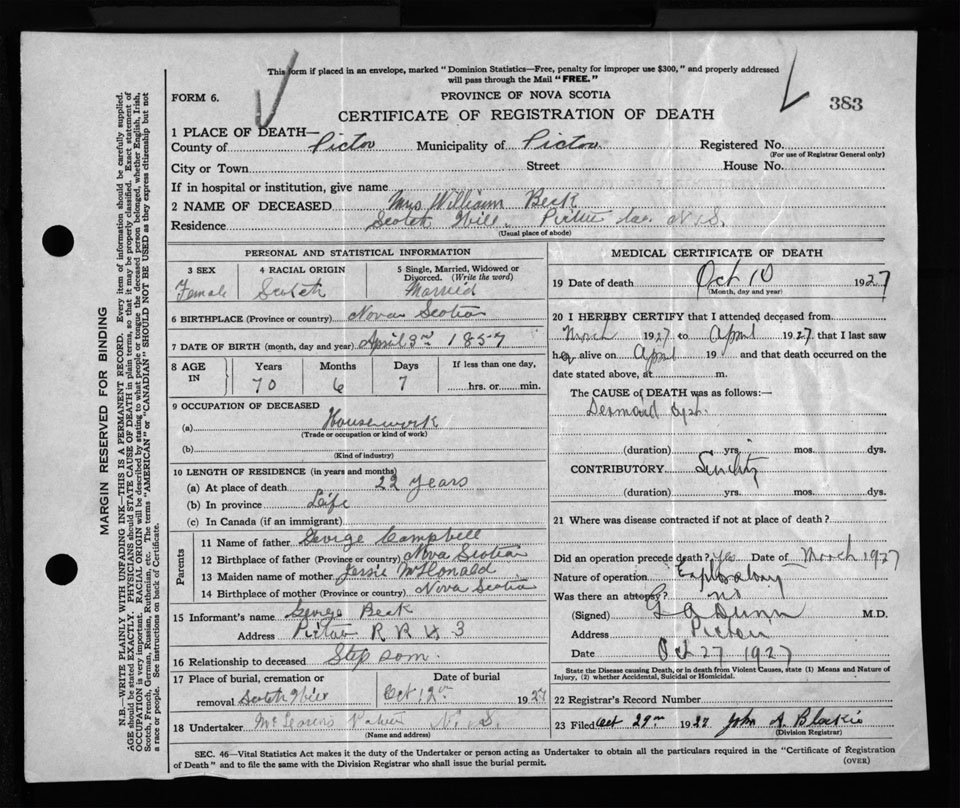 This form if placed in an envelope, marked "Dominion Statistics—Free, penalty for improper use $300," and properly addressed
will pass through the Mail "FREE."
FORM 6.
PROVINCE OF NOVA SCOTIA
383
CERTIFICATE OF REGISTRATION OF DEATH
1 PLACE OF DEATH—
County of Pictou Municipality of Pictou Registered No.
(For use of Registrar General only)
City or Town Street House No.
If in hospital or institution, give name
2 NAME OF DECEASED Mrs William Beck
Residence Scotch Hill, Pictou Co. N.S.
(Usual place of abode)
PERSONAL AND STATISTICAL INFORMATION
3 SEX 4 RACIAL ORIGIN 5 Single, Married, Widowed or
Divorced. (Write the word)
Female Scotch Married
6 BIRTHPLACE (Province or country) Nova Scotia
7 DATE OF BIRTH (month, day and year) April 3rd 1857
8 AGE IN Years Months Days If less than one day,
70 6 7 hrs. or min.
9 OCCUPATION OF DECEASED
(a) Housework
(Trade or occupation or kind of work)
(b)
(Kind of industry)
10 LENGTH OF RESIDENCE (in years and months)
(a) At place of death 22 years
(b) In province Life
(c) In Canada (if an immigrant)
Parents
11 Name of father George Campbell
12 Birthplace of father (Province or country) Nova Scotia
13 Maiden name of mother Jessie McDonald
14 Birthplace of mother (Province or country) Nova Scotia
15 Informant's name George Beck
Address Pictou R R # 3
16 Relationship to deceased Step son.
17 Place of burial, cremation or Date of burial
removal Scotch Hill Oct 12th 1927
18 Undertaker McLarens Pictou N.S.
(Name and address)
MEDICAL CERTIFICATE OF DEATH
19 Date of death Oct 10 1927
(Month, day and year)
20 I HEREBY CERTIFY that I attended deceased from
March 1927 to April 1927 that I last saw
her alive on April 19 and that death occurred on the
date stated above, at m.
The CAUSE OF DEATH was as follows:—
Dermoid cyst.
(duration) yrs. mos. dys.
CONTRIBUTORY Senility
(duration) yrs. mos. dys.
21 Where was disease contracted if not at place of death?
Did an operation precede death? Yes Date of March 1927
Nature of operation Exploratory
Was there an autopsy? no
(Signed) Dunn M.D.
Address Pictou
Date Oct 27 1927
State the Disease causing Death, or in death from Violent Causes, state (1) Means and Nature of
Injury, (2) whether Accidental, Suicidal or Homicidal.
22 Registrar's Record Number
23 Filed Oct 29th 1927 John A Blaikie
(Division Registrar)
SEC. 46—Vital Statistics Act makes it the duty of the Undertaker or person acting as Undertaker to obtain all the particulars required in the "Certificate of Registration
of Death" and to file the same with the Division Registrar who shall issue the burial permit.
(OVER)
MARGIN RESERVED FOR BINDING
N.B.—WRITE PLAINLY WITH UNFADING INK—THIS IS A PERMANENT RECORD. Every item of information should be carefully supplied.
AGE should be stated EXACTLY. PHYSICIANS should STATE CAUSE OF DEATH in plain terms, so that it may be properly classified. Exact statement of
OCCUPATION is very important. RACIAL ORIGIN will be described by stating to what people or tongue the deceased person belonged, whether English, Irish,
Scotch, French, German, Russian, Ruthenian, etc. The terms "AMERICAN" or "CANADIAN" SHOULD NOT BE USED as they express citizenship but not
a race or people. See instructions on back of Certificate.